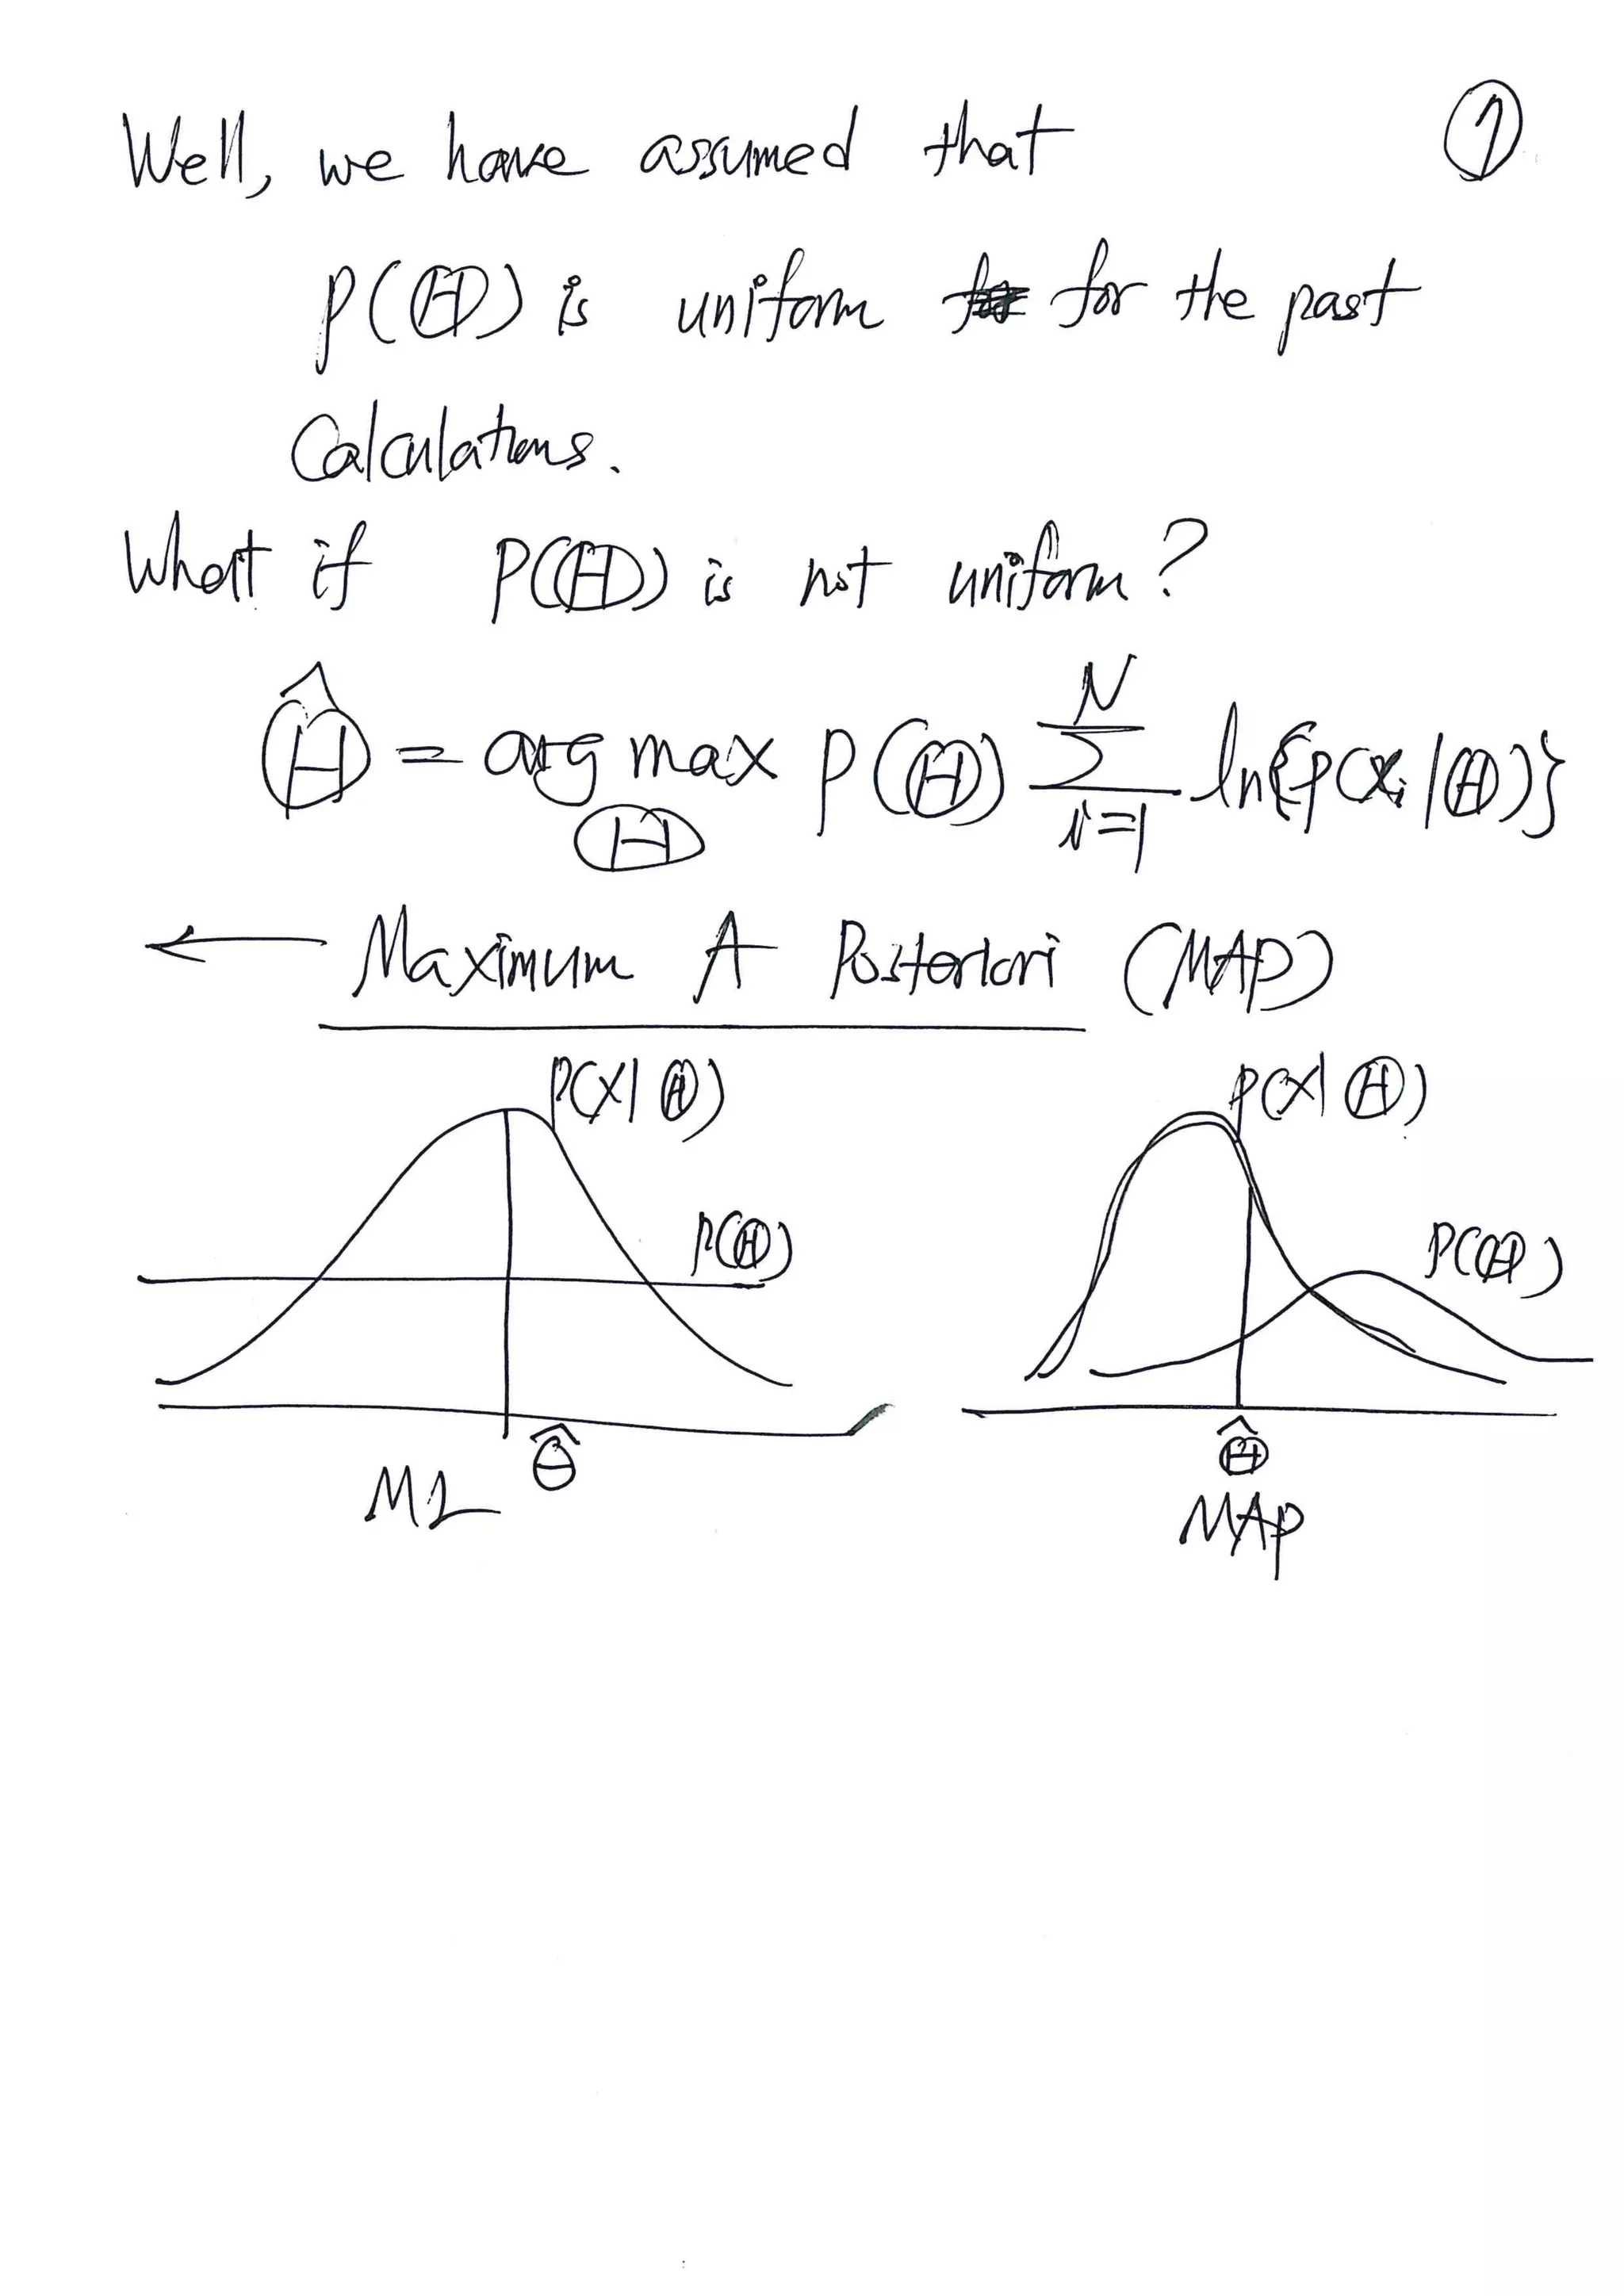 Well, we have assumed that ①
p(Θ) is uniform for the past
Calculations.
What if P(Θ) is not uniform?
Θ̂ = arg max_Θ p(Θ) Σ_{i=1}^{N} ln{p(x_i|Θ)}
← Maximum A Posteriori (MAP)
P(X|Θ) P(X|Θ)
P(Θ) P(Θ)
Θ̂ Θ̂
ML MAP